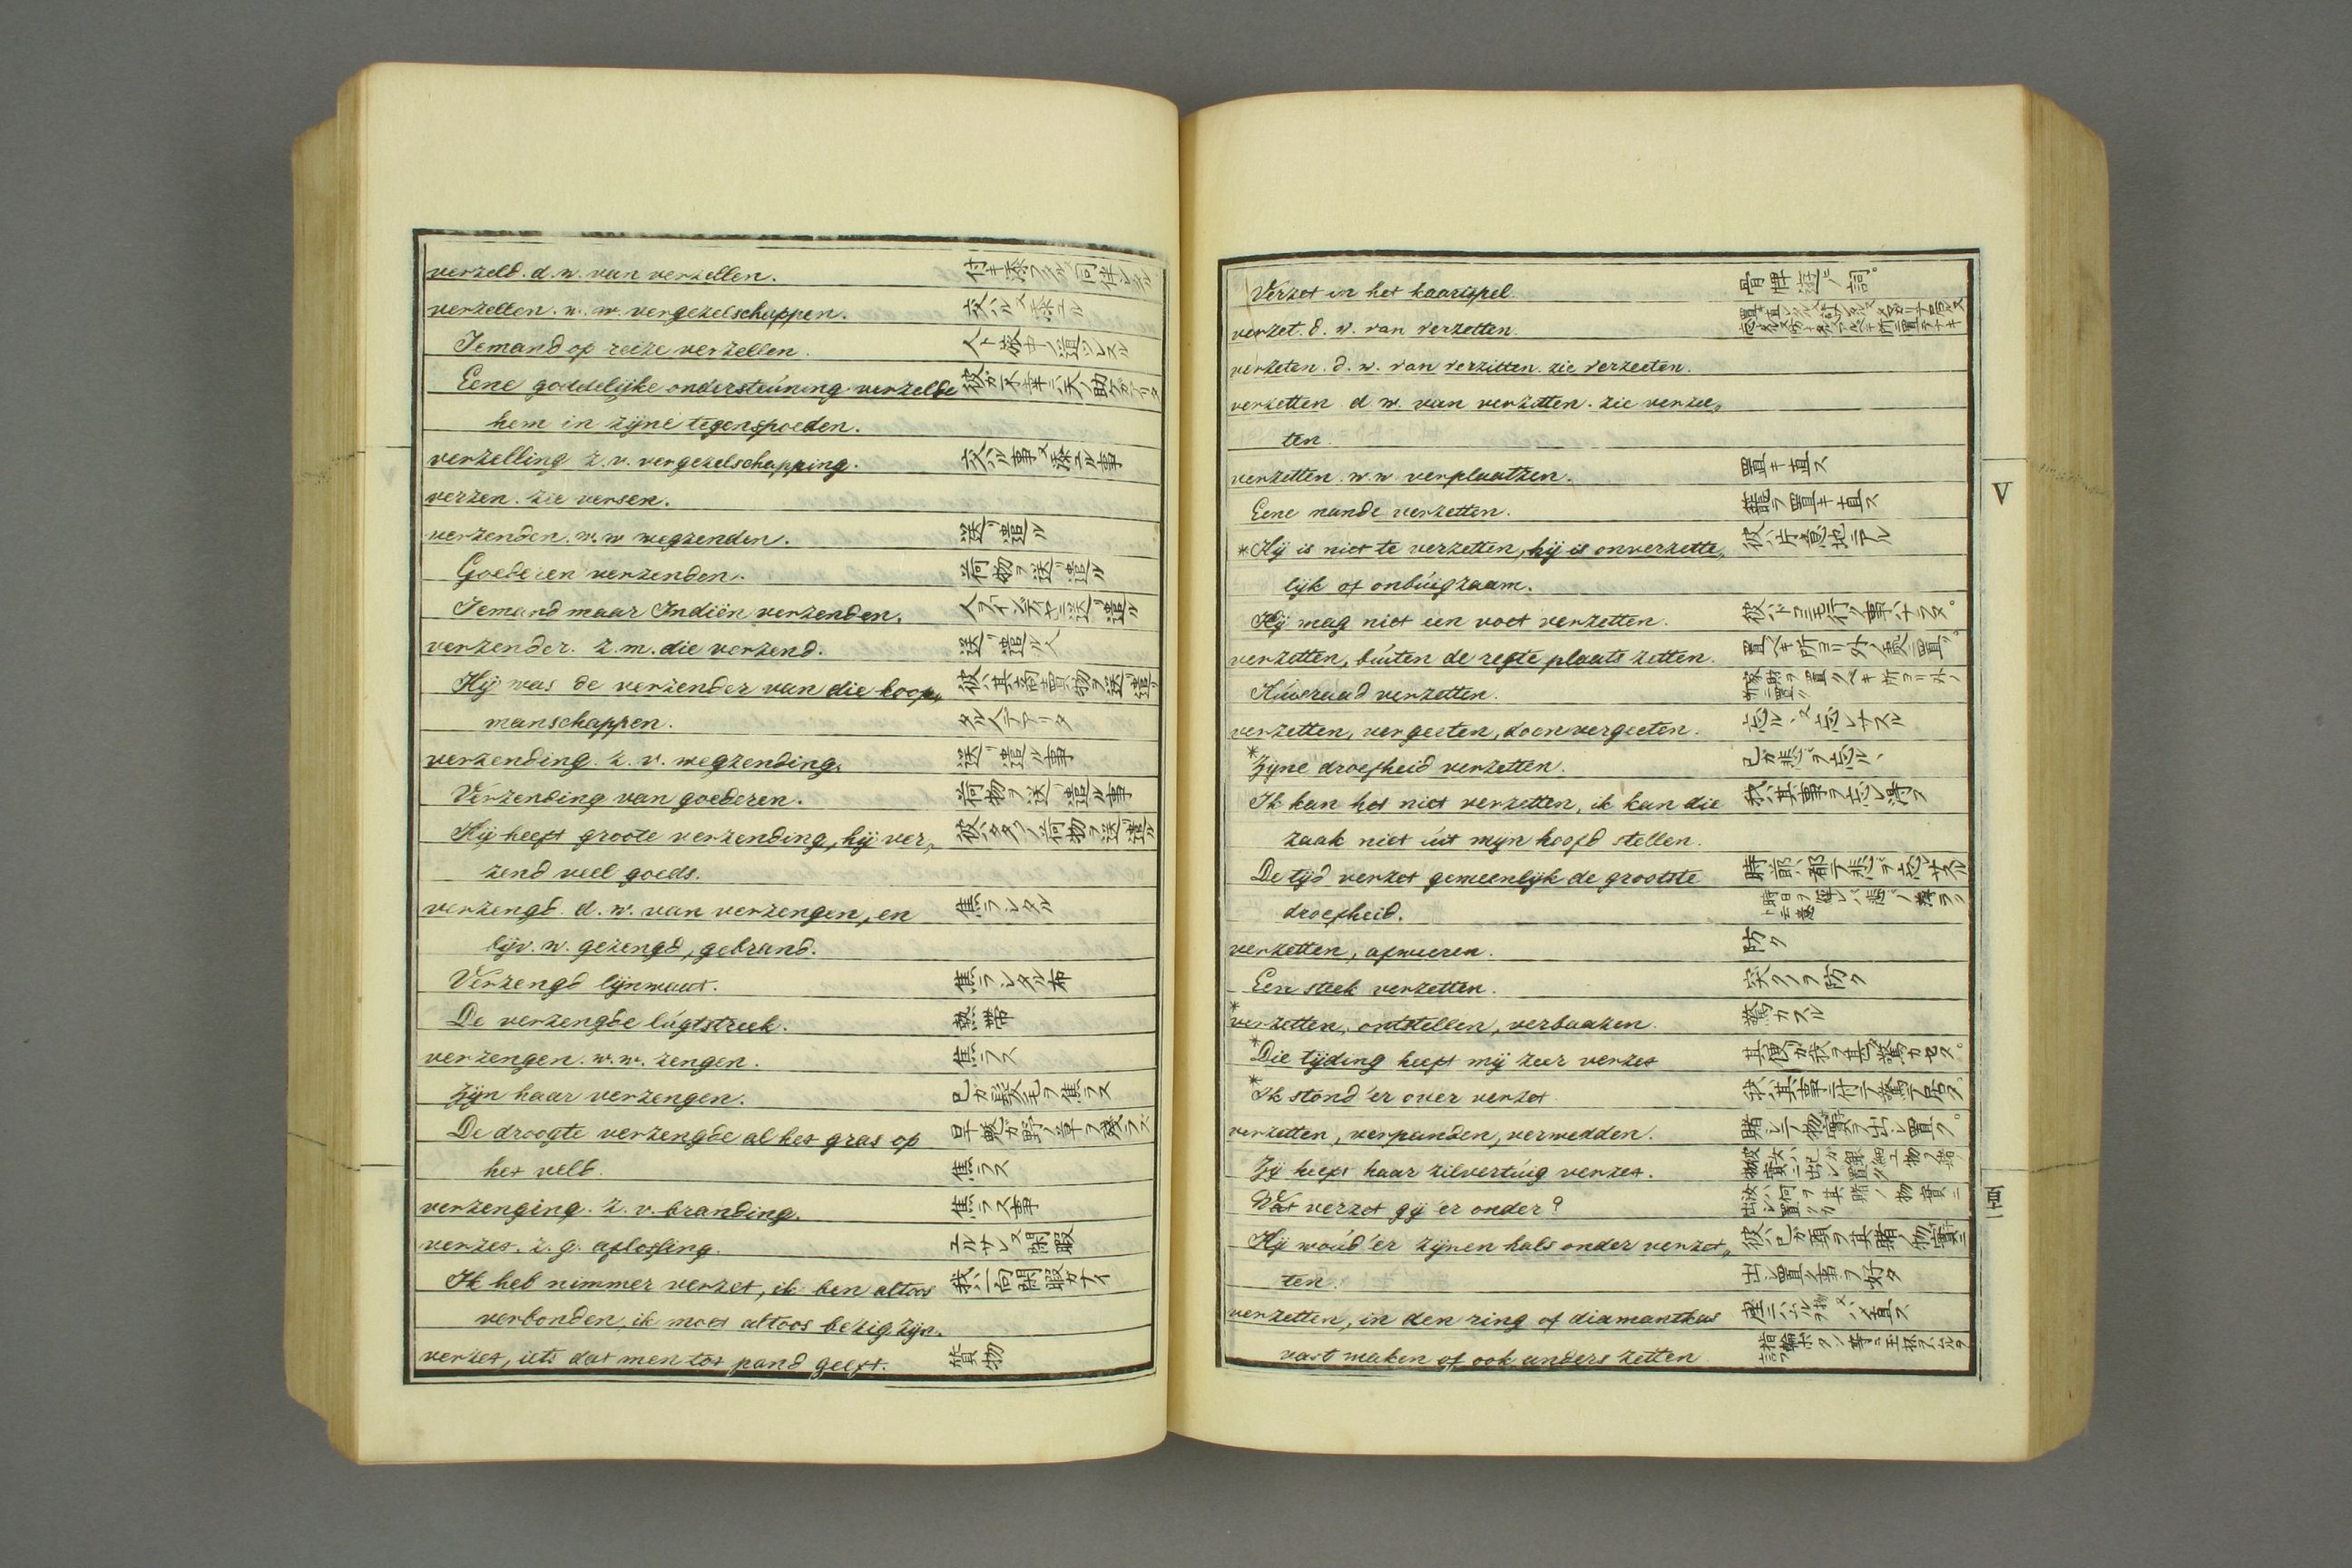 verzeld. d. w. van verzellen. 付キ添フタル 同伴シタル
verzellen. w. w. vergezelschappen. 交ハル又添エル
Iemand op reize verzellen. 人ト旅中ノ道ヅレスル
Eene goddelijke ondersteúning verzelde 彼ガ不幸ニ天ノ助ケガアリタ
hem in zijne tegenspoeden.
verzelling z. v. vergezelschapping. 交ハル事又添エル事
verzen. zie versen.
verzenden. w. w wegzenden. 送リ遣ル
Goederen verzenden. 荷物ヲ送リ遣ル
Iemand maar Indiën verzenden. 人ヲインヂヤニ送リ遣ル
verzender. z. m. die verzend. 送リ遣ル人
Hij was de verzender van die koop„ 彼ハ其商賣物ヲ送リ遣リ
manschappen. タル人デアリタ
verzending. z. v. wegzending. 送リ遣ル事
Verzending van goederen. 荷物ヲ送リ遣ル事
Hij heeft groote verzending, hij ver„ 彼ハ多クノ荷物ヲ送リ遣ル
zend veel goeds.
verzengd. d. w. van verzengen, en 焦ラシタル
bijv. w. gezengd, gebrand.
Verzengd lijnwaat. 焦ラシタル布
De verzengde lúgtstreek. 熱帯
verzengen. w. w. zengen. 焦ラス
Zijn haar verzengen. 己ガ髪毛ヲ焦ラス
De droogte verzengde al het gras op 旱魃ガ野ノ草ヲ残ラズ
het veld. 焦ラス
verzenging. z. v. branding. 焦ラス事
verzet. z. g. aplossing. ユルサレ又閑暇
Ik heb nimmer verzet, ik ben altoos 我ハ一向閑暇ガナイ
verbonden, ik moet altoos bezig zijn.
verzet, iets dat men tot pand geeft. 質物
Verzet in het kaartspel. 骨牌遊ビノ詞。
verzet. d. w. van verzetten.
verzeten. d. w. van verzitten. zie verzeeten.
verzetten d. w. van verzitten. zie verzee„
ten.
verzetten. w. w verplaatzen. 置キ直ス
Eene mande verzetten. 籠ヲ置キ直ス
*Hij is niet te verzetten, hij is onverzette„ 彼ハ片意地デアル
lijk of onbúigzaam.
Hij mag niet éen voet verzetten. 彼ハドコニモ行ク事ハナラヌ。
verzetten, búiten de regte plaats zetten. 置クベキ所ヨリ外ノ處ニ置ク。
Húisraad verzetten. 家財ヲ置クベキ所ヨリ外ノ所ニ置ク
verzetten, vergeeten, doen vergeeten. 忘ル、又忘レサスル
*Zijne droefheid verzetten. 己ガ悲ヲ忘ル、
Ik kan het niet verzetten, ik kan die 我ハ其事ヲ忘レ得ヌ
zaak niet uit mijn hoofd stellen.
De tijd verzet gemeenlijk de grootste 時節ハ都テ悲ヲ忘レサスル
droefheid.
verzetten, afweeren. 防ク
Een steek verzetten. 突クヲ防ク
*verzetten, ontstellen, verbaazen. 驚カスル
*Die tijding heeft mij zeer verzet 其便ガ我ヲ甚ダ驚カセタ。
*Ik stond 'er over verzet. 我ハ其事ニ付テ驚テ居タ。
verzetten, verpanden, verwedden. 賭シテノ物實ヲ出シ置ク。
Zij heeft haar zilvertúig verzet.
Wat verzet gij er onder? 汝ハ何ヲ其賭ノ物實ニ出シ置クカ
Hij woúd 'er zijnen hals onder verzet„ 彼ハ己ガ頭ヲ其賭ノ物實ニ
ten. 出シ置ク事ヲ好タ
verzetten, in den ring of diamantkas
vast maken of ook anders zetten
V